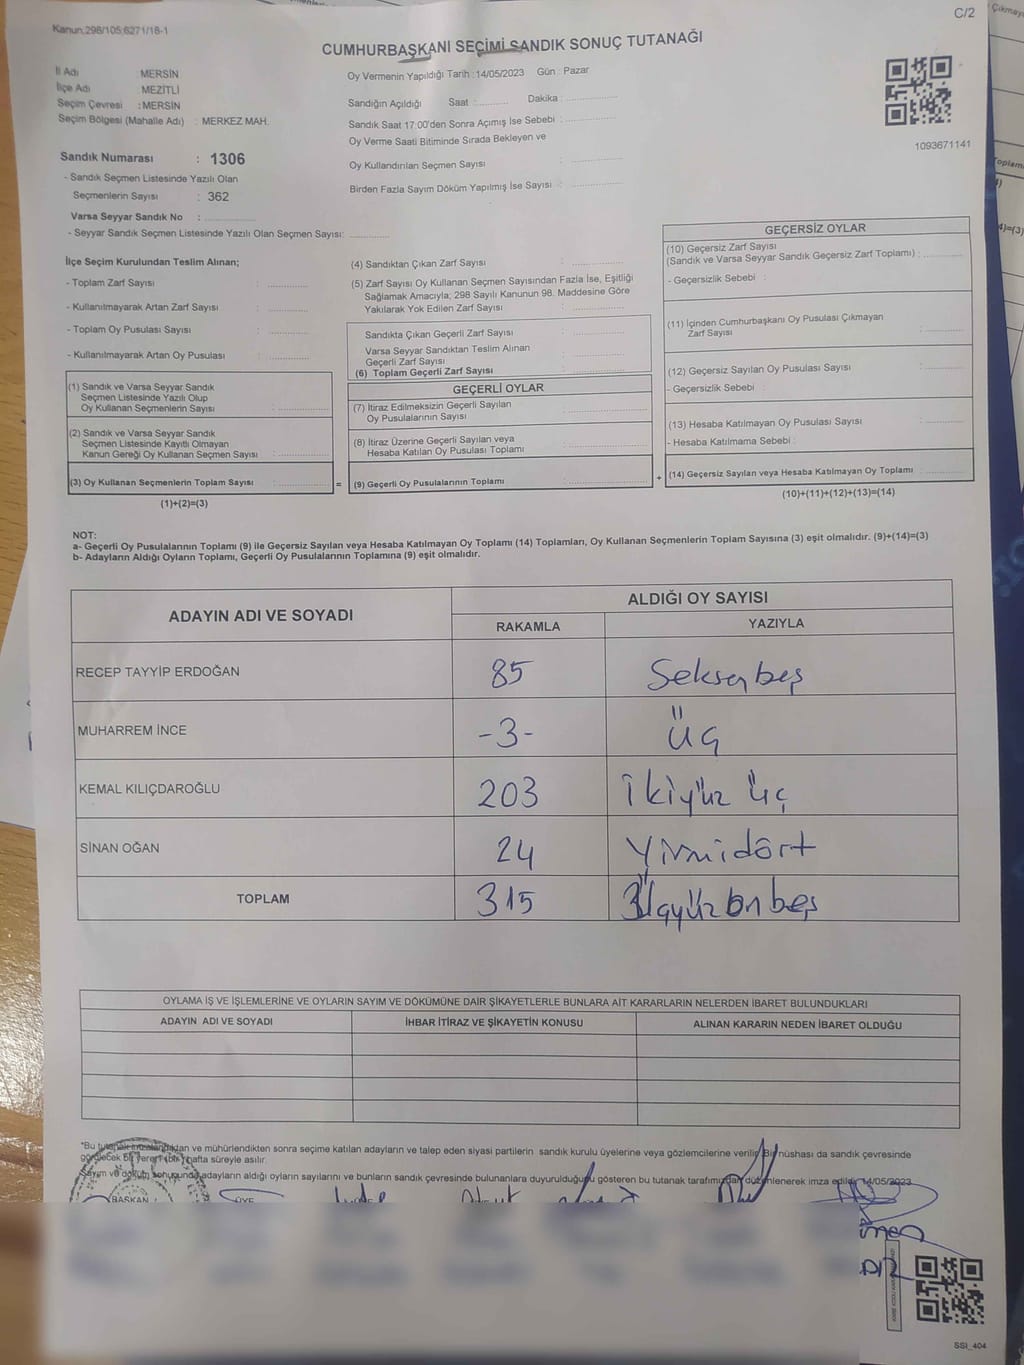 C/2
Kanun.298/105;6271/18-1
CUMHURBAŞKANI SEÇİMİ SANDIK SONUÇ TUTANAĞI
İl Adı MERSİN
İlçe Adı MEZİTLİ
Seçim Çevresi : MERSİN
Seçim Bölgesi (Mahalle Adı) : MERKEZ MAH.
Oy Vermenin Yapıldığı Tarih : 14/05/2023 Gün : Pazar
Sandığın Açıldığı Saat : Dakika :
Sandık Saat 17:00'den Sonra Açımış İse Sebebi :
Oy Verme Saati Bitiminde Sırada Bekleyen ve
Oy Kullandırılan Seçmen Sayısı :
Birden Fazla Sayım Döküm Yapılmış İse Sayısı :
1093671141
Sandık Numarası : 1306
- Sandık Seçmen Listesinde Yazılı Olan
Seçmenlerin Sayısı : 362
Varsa Seyyar Sandık No :
- Seyyar Sandık Seçmen Listesinde Yazılı Olan Seçmen Sayısı:
İlçe Seçim Kurulundan Teslim Alınan;
- Toplam Zarf Sayısı :
- Kullanılmayarak Artan Zarf Sayısı :
- Toplam Oy Pusulası Sayısı :
- Kullanılmayarak Artan Oy Pusulası :
(1) Sandık ve Varsa Seyyar Sandık
Seçmen Listesinde Yazılı Olup
Oy Kullanan Seçmenlerin Sayısı :
(2) Sandık ve Varsa Seyyar Sandık
Seçmen Listesinde Kayıtlı Olmayan
Kanun Gereği Oy Kullanan Seçmen Sayısı :
(3) Oy Kullanan Seçmenlerin Toplam Sayısı :
(1)+(2)=(3)
(4) Sandıktan Çıkan Zarf Sayısı :
(5) Zarf Sayısı Oy Kullanan Seçmen Sayısından Fazla İse, Eşitliği
Sağlamak Amacıyla; 298 Sayılı Kanunun 98. Maddesine Göre
Yakılarak Yok Edilen Zarf Sayısı :
Sandıkta Çıkan Geçerli Zarf Sayısı :
Varsa Seyyar Sandıktan Teslim Alınan
Geçerli Zarf Sayısı :
(6) Toplam Geçerli Zarf Sayısı :
GEÇERLİ OYLAR
(7) İtiraz Edilmeksizin Geçerli Sayılan
Oy Pusulalarının Sayısı :
(8) İtiraz Üzerine Geçerli Sayılan veya
Hesaba Katılan Oy Pusulası Toplamı :
= (9) Geçerli Oy Pusulalarının Toplamı :
GEÇERSİZ OYLAR
(10) Geçersiz Zarf Sayısı
(Sandık ve Varsa Seyyar Sandık Geçersiz Zarf Toplamı) :
- Geçersizlik Sebebi :
(11) İçinden Cumhurbaşkanı Oy Pusulası Çıkmayan
Zarf Sayısı :
(12) Geçersiz Sayılan Oy Pusulası Sayısı :
- Geçersizlik Sebebi :
(13) Hesaba Katılmayan Oy Pusulası Sayısı :
- Hesaba Katılmama Sebebi :
+ (14) Geçersiz Sayılan veya Hesaba Katılmayan Oy Toplamı :
(10)+(11)+(12)+(13)=(14)
NOT:
a- Geçerli Oy Pusulalarının Toplamı (9) ile Geçersiz Sayılan veya Hesaba Katılmayan Oy Toplamı (14) Toplamları, Oy Kullanan Seçmenlerin Toplam Sayısına (3) eşit olmalıdır. (9)+(14)=(3)
b- Adayların Aldığı Oyların Toplamı, Geçerli Oy Pusulalarının Toplamına (9) eşit olmalıdır.
ADAYIN ADI VE SOYADI ALDIĞI OY SAYISI
RAKAMLA YAZIYLA
RECEP TAYYİP ERDOĞAN 85 Seksenbeş
MUHARREM İNCE -3- Üç
KEMAL KILIÇDAROĞLU 203 İkiyüz üç
SİNAN OĞAN 24 Yirmidört
TOPLAM 315 Üçyüzonbeş
OYLAMA İŞ VE İŞLEMLERİNE VE OYLARIN SAYIM VE DÖKÜMÜNE DAİR ŞİKAYETLERLE BUNLARA AİT KARARLARIN NELERDEN İBARET BULUNDUKLARI
ADAYIN ADI VE SOYADI İHBAR İTİRAZ VE ŞİKAYETİN KONUSU ALINAN KARARIN NEDEN İBARET OLDUĞU
*Bu tutanak imzalandıktan ve mühürlendikten sonra seçime katılan adayların ve talep eden siyasi partilerin sandık kurulu üyelerine veya gözlemcilerine verilir. Bir nüshası da sandık çevresinde
görülecek bir yere 1 (bir) hafta süreyle asılır.
Sayım ve döküm sonucunda adayların aldığı oyların sayılarını ve bunların sandık çevresinde bulunanlara duyurulduğunu gösteren bu tutanak tarafımızdan düzenlenerek imza edildi. 14/05/2023
BAŞKAN ÜYE
SSI_404